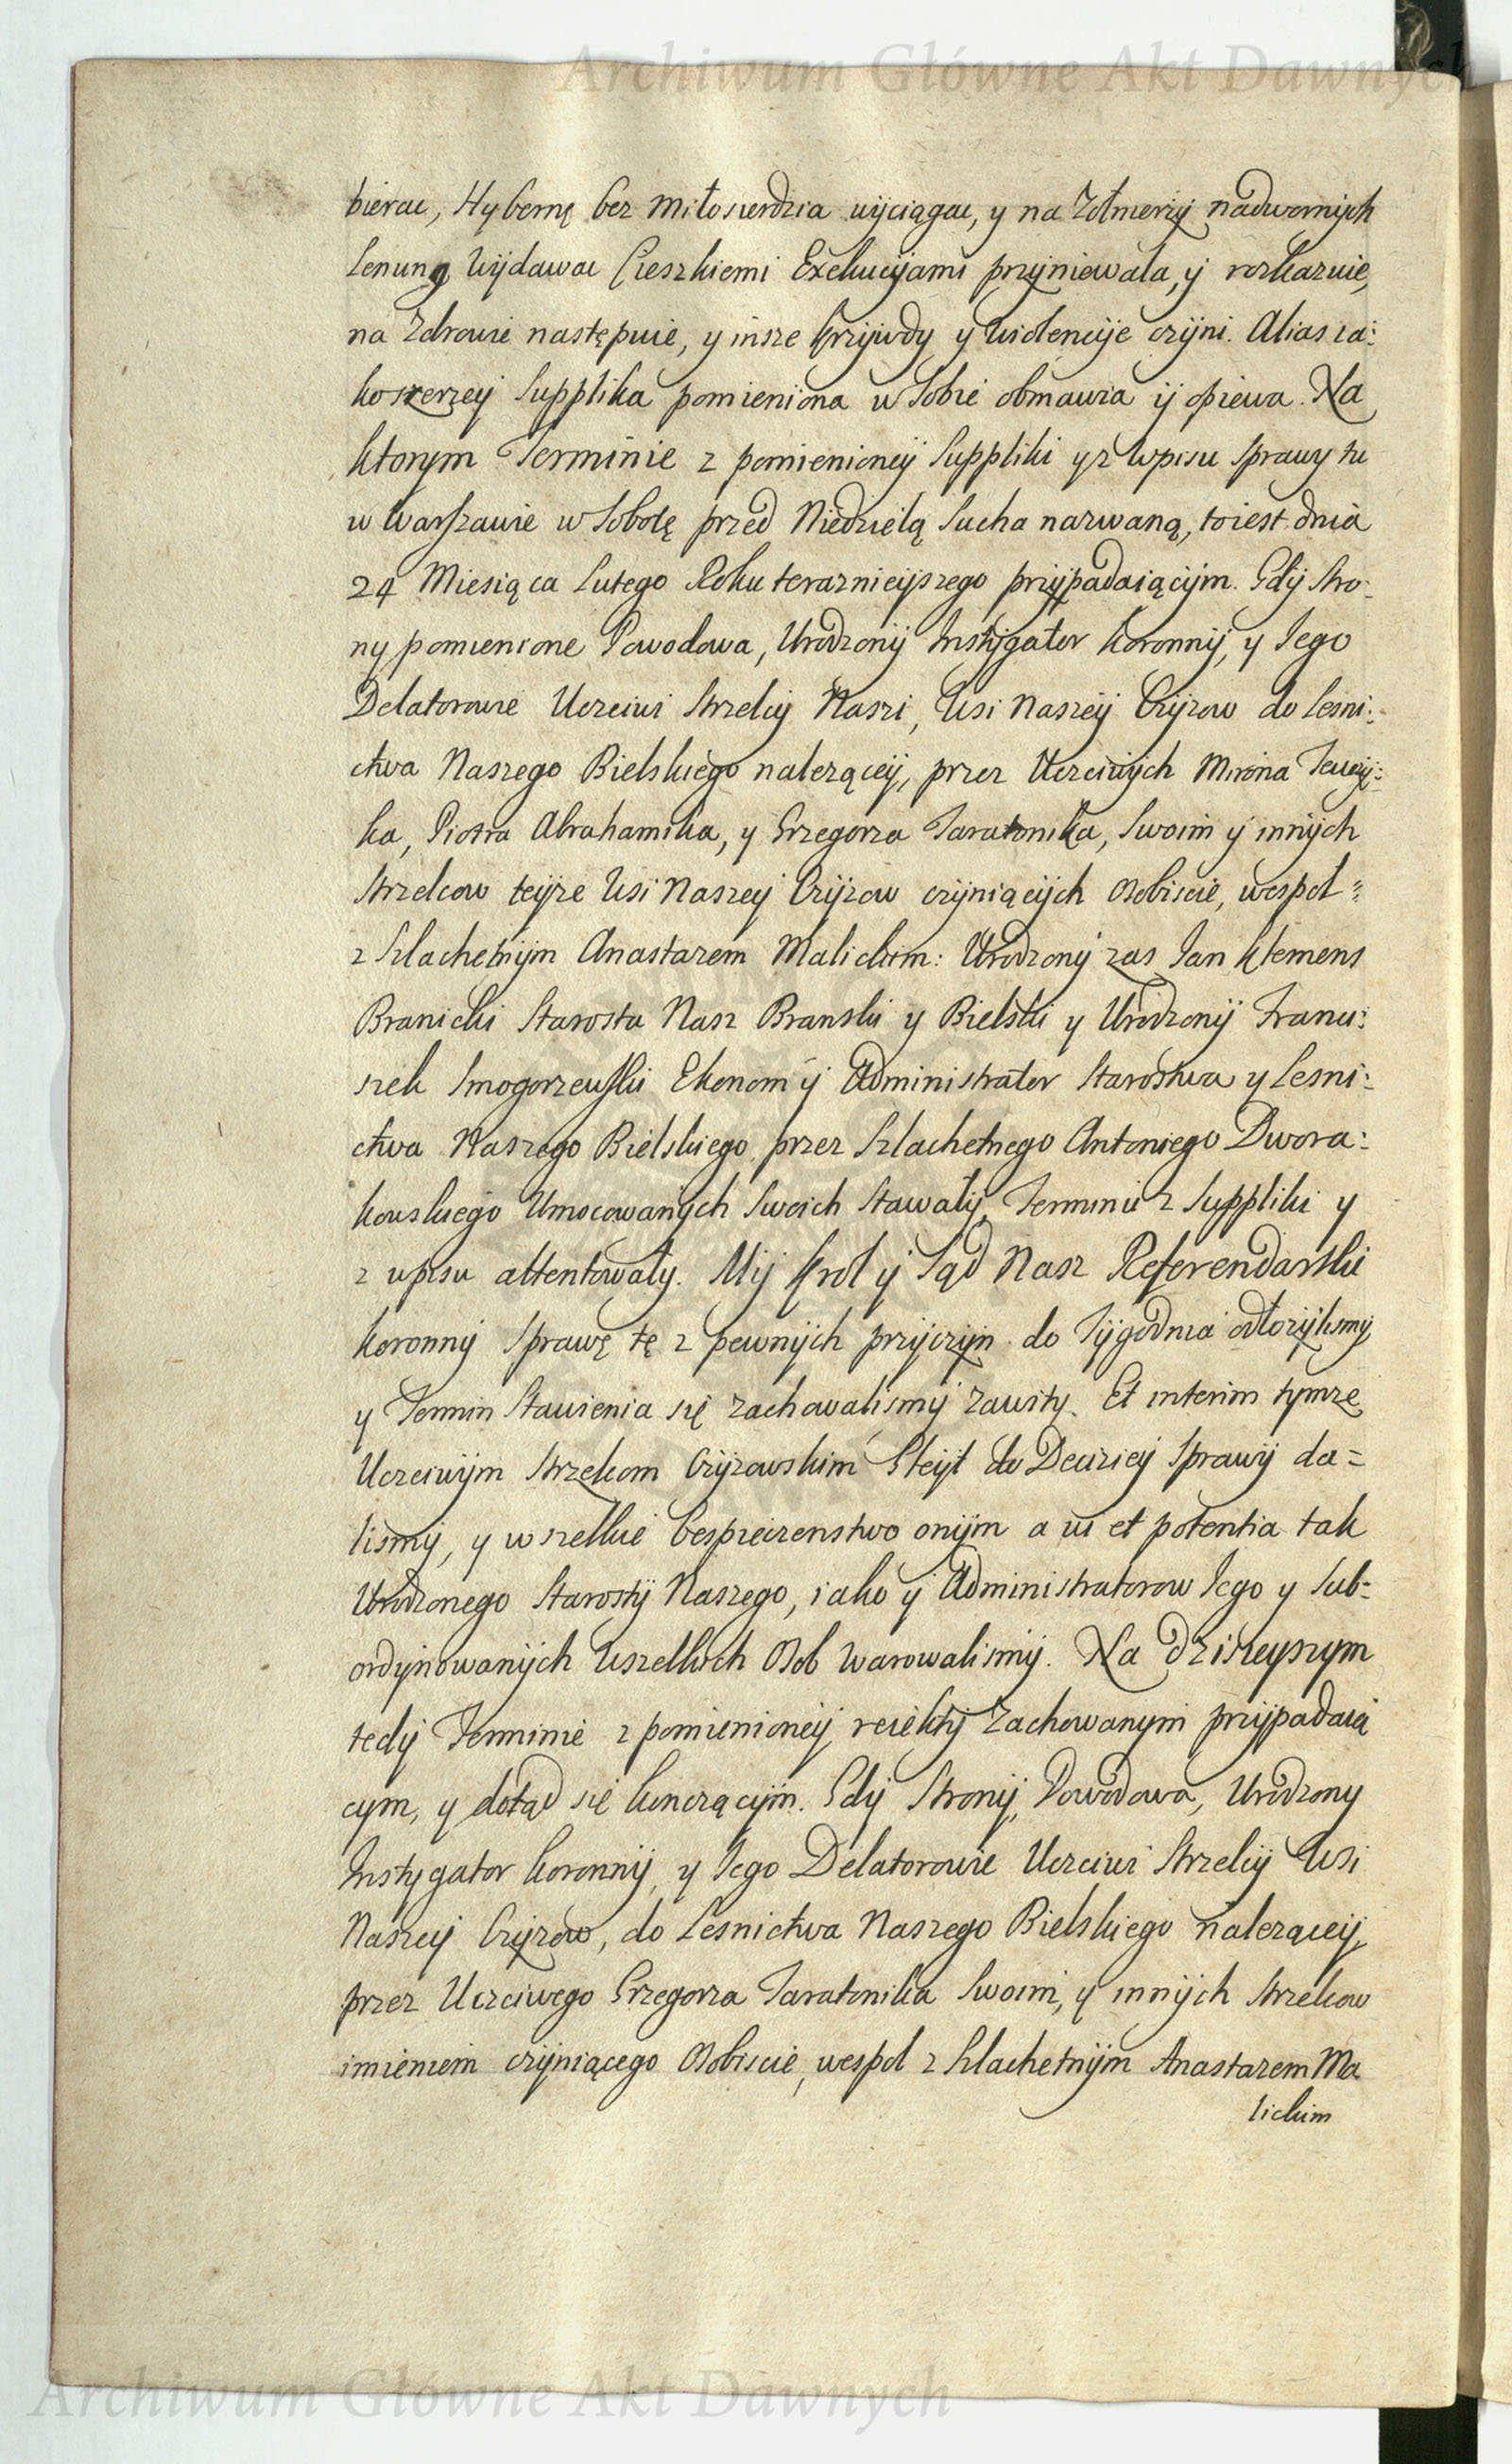 Archiwum Główne Akt Dawnych
bierac, Hybernę bez miłosierdzia wyciągac, y na Zołnierzy nadwornych
Lenung wydawac Cieszkiemi Exekucyjami przyniewala, y rozkazuie,
na Zdrowie następuie, y insze krzywdy y wiolencyje czyni. Alias ia:
koszerzey Supplika pomieniona w sobie obmawia y opiewa. Na
ktorym Terminie z pomienioney Suppliki y z wpisu sprawy tu
w Warszawie w Sobotę przed Niedzielą Sucha nazwaną, to iest dnia
24 Miesiąca Lutego Roku teraznieyszego przypadaiącym. Gdy Stro:
ny pomienione Powodowa, Urodzony Instygator koronny, y Jego
Delatorowie Uczciwi Strzelcy Naszi, wsi Naszey Czyzow do Lesni:
ctwa Naszego Bielskiego nalezącey, przez Uczciwych Mirona
ka, Piotra Abrahamika, y Grzegorza Taratonika, swoim y innych
Strzelcow teyze wsi Naszey Czyzow czyniących osobiscie, wespoł
z Szlachetnym Anastazem Malickim: Urodzony zas Jan Klemens
Branicki Starosta Nasz Branski y Bielski y Urodzony Franci:
szek Smogorzewski Ekonom y Administrator Starostwa y Lesni:
ctwa Naszego Bielskiego przez Szlachetnego Antoniego Dwora:
kowskiego Umocowanych swoich stawały, Terminu z Suppliki y
z wpisu attentowały. My Krol y Sąd Nasz Referendarski
koronny sprawę tę z pewnych przyczyn do Tygodnia odłozylismy
y Termin stawienia się zachowalismy zawity. Et interim tymze
Uczciwym Strzelcom Czyzowskim Gleyt do Deciziey sprawy da=
lismy, y wszelkie bespieczenstwo onym a vi et potentia tak
Urodzonego Starosty Naszego, iako y Administratorow Jego y sub=
ordynowanych wszelkich osob warowalismy. Na dzisieyszym
tedy Terminie z pomienioney reiekty zachowanym przypadaią
cym, y dotąd się konczącym. Gdy Strony, Powodowa, Urodzony
Instygator koronny, y Jego Delatorowie Uczciwi Strzelcy wsi
Naszey Czyzow, do Lesnictwa Naszego Bielskiego nalezącey,
przez Uczciwego Grzegorza Taratonika swoim, y innych Strzelcow
imieniem czyniącego osobiscie, wespol z Szlachetnym Anastazem Ma
lickim
Archiwum Główne Akt Dawnych